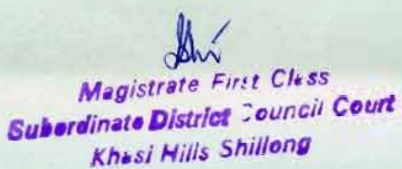 Magistrate First Class
Subordinate District Council Court
Khasi Hills Shillong